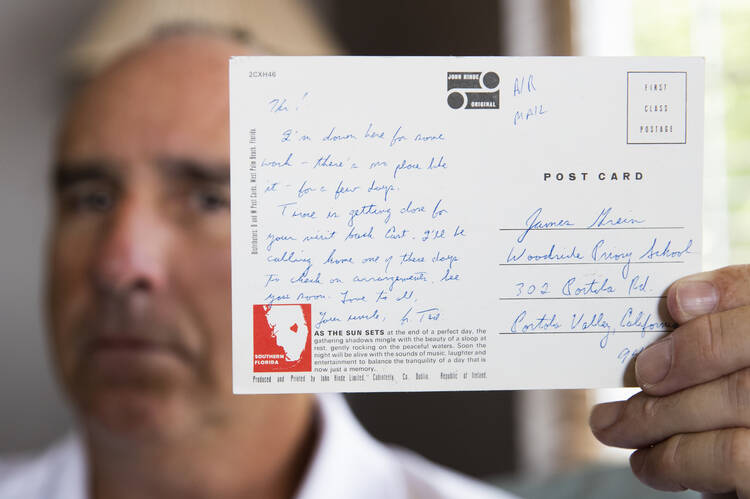 2CXH46
JOHN HINDE
ORIGINAL
AIR
MAIL
FIRST
CLASS
POSTAGE
POST CARD
Distributors: D and M Post Cards, West Palm Beach, Florida.
I'm down here for some
work - there's no place like
it - for a few days.
Time is getting close for
your visit back East. I'll be
calling home one of these days
to check on arrangements. See
you soon. Love to all,
Your uncle, Fr. Ted
James Grein
Woodside Priory School
302 Portola Rd.
Portola Valley California
94
SOUTHERN
FLORIDA
AS THE SUN SETS at the end of a perfect day, the
gathering shadows mingle with the beauty of a sloop at
rest, gently rocking on the peaceful waters. Soon the
night will be alive with the sounds of music, laughter and
entertainment to balance the tranquility of a day that is
now just a memory.
Produced and Printed by John Hinde Limited, Cabinteely, Co. Dublin, Republic of Ireland.